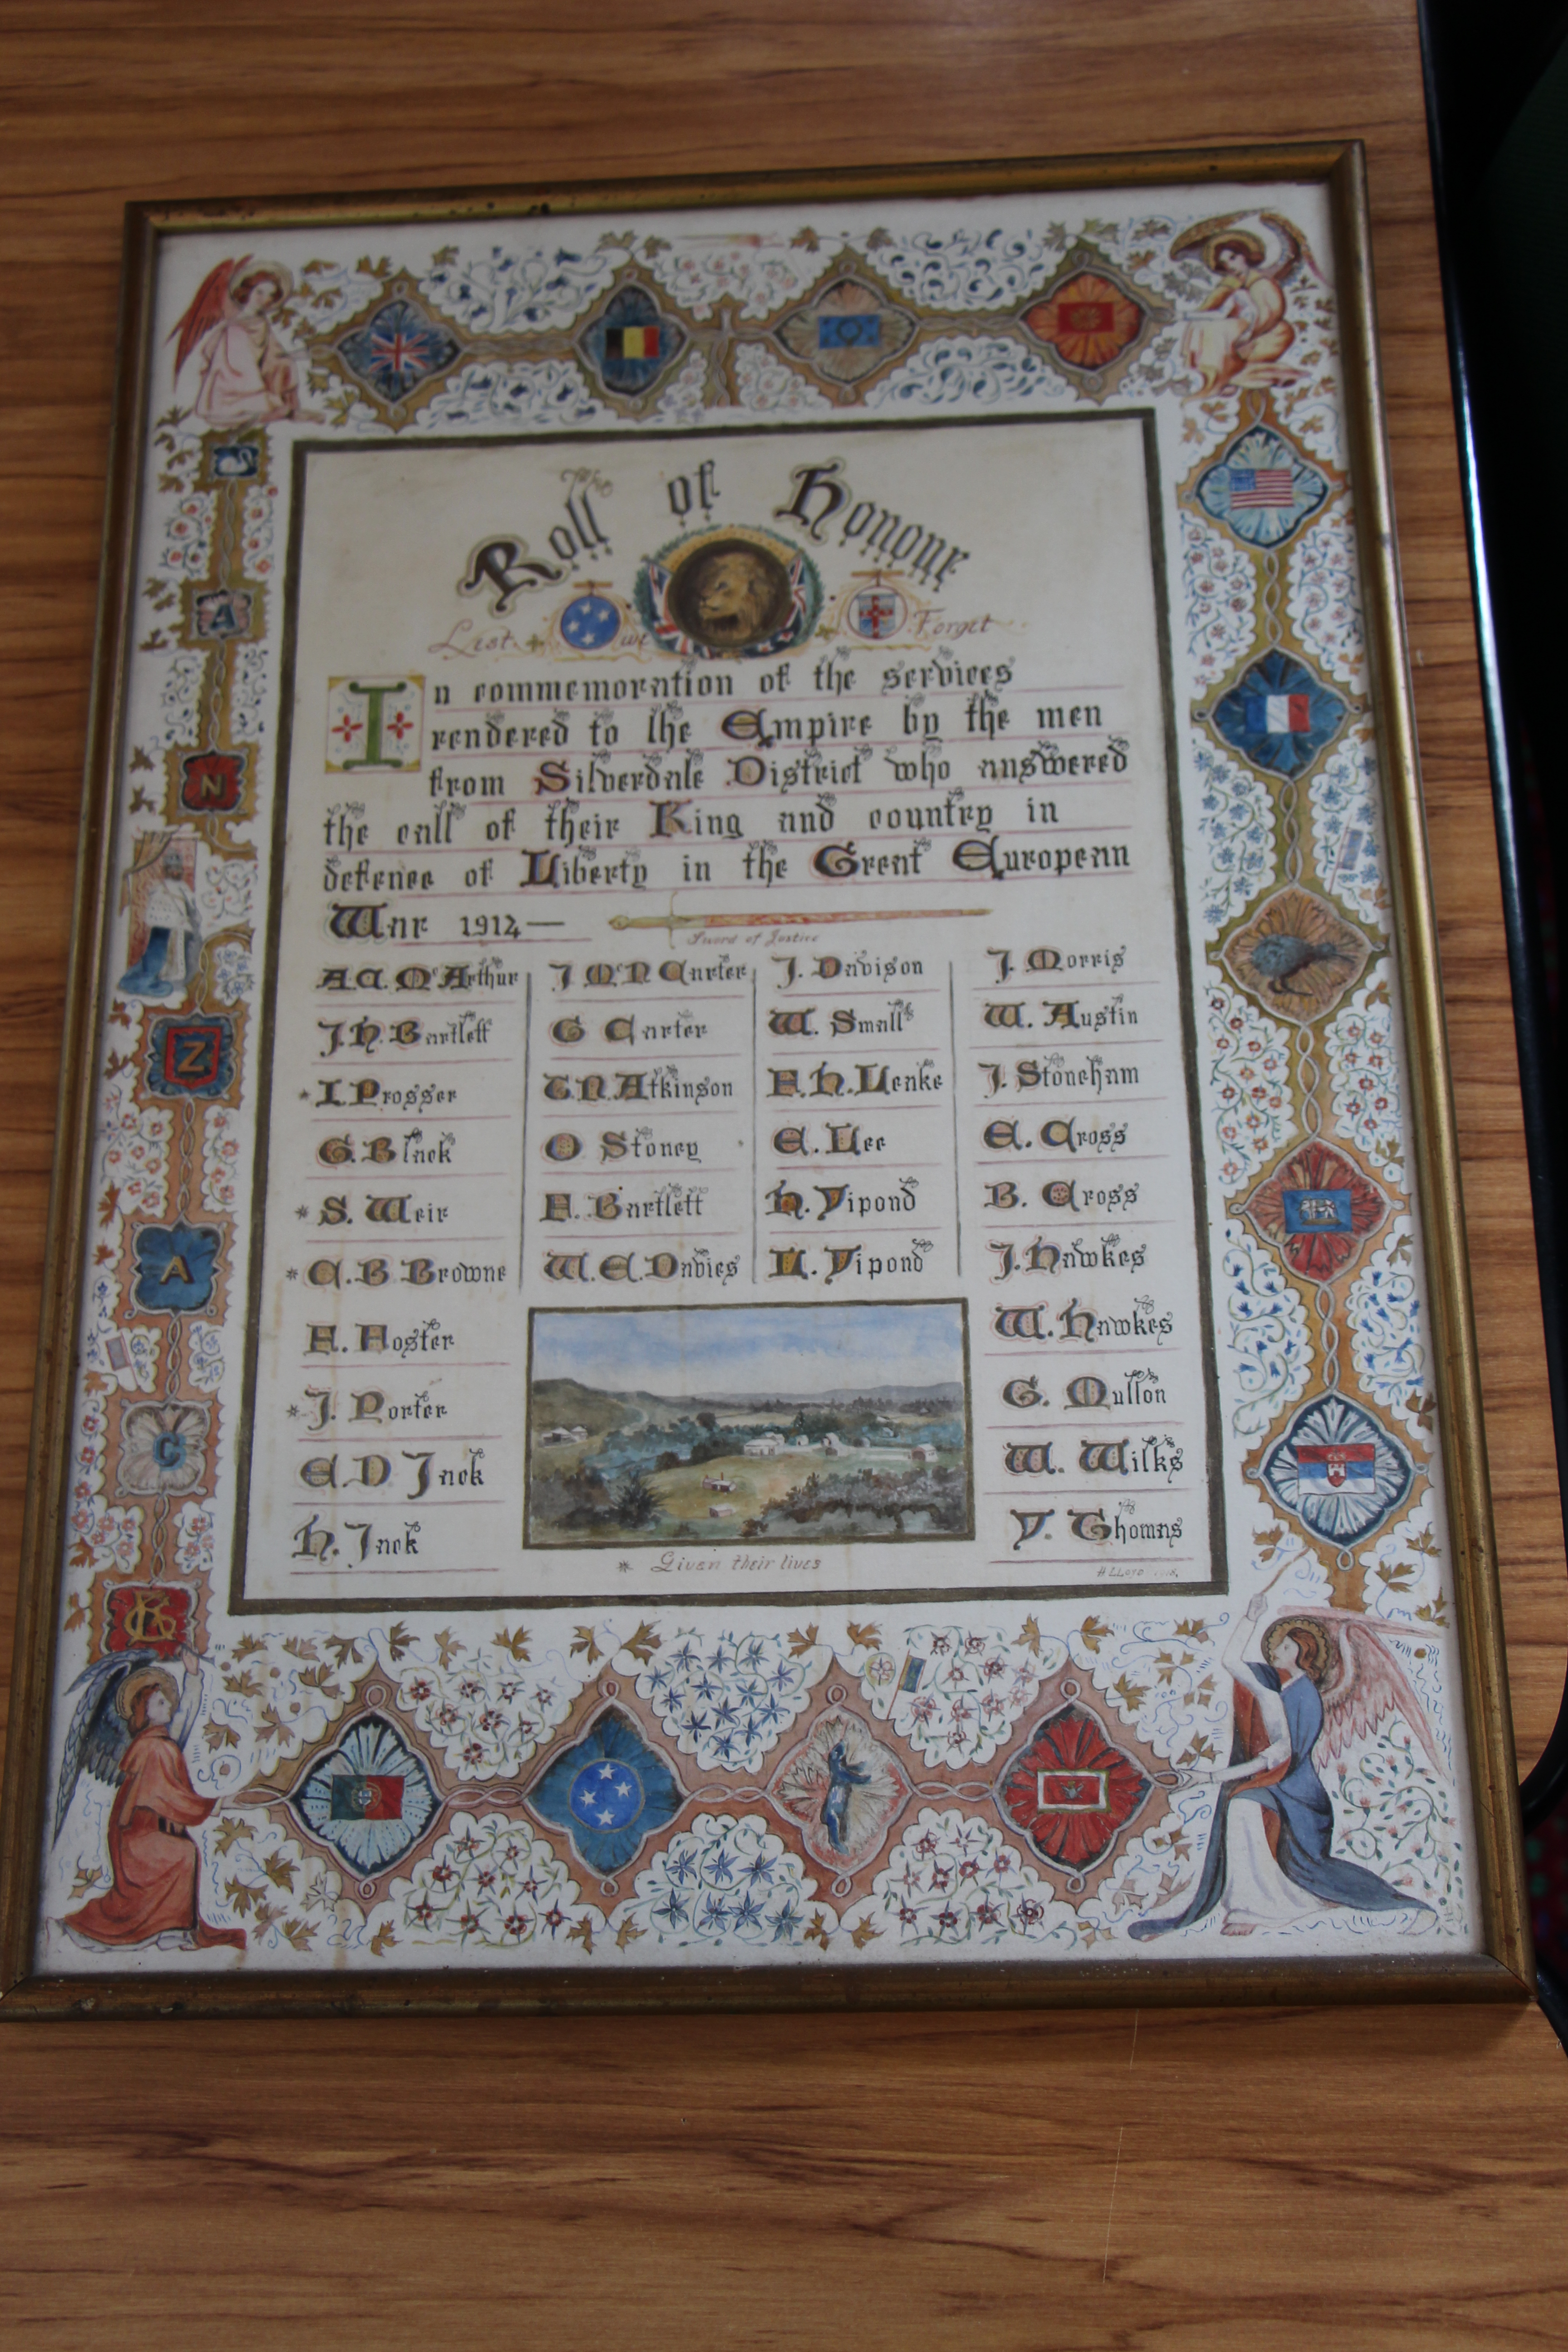 The
Roll of Honour
Lest we Forget
In commemoration of the services
rendered to the Empire by the men
from Silverdale District who answered
the call of their King and country in
defence of Liberty in the Great European
War 1914—
Sword of Justice
A.C. McArthur
J.H. Bartlett
* I. Prosser
G. Black
* S. Weir
* C.B. Browne
F. Foster
* J. Porter
E.D Jack
H. Jack
J McN Carter
G Carter
T.N. Atkinson
O Stoney
F. Bartlett
W.E. Davies
J. Davison
W. Small
F.H. Leake
E. Lee
H. Vipond
L. Vipond
J. Morris
W. Austin
J. Stoneham
E. Cross
B. Cross
J. Hawkes
W. Hawkes
G. Mullon
W. Wilks
V. Thomas
* Given their lives
H LLOYD
A
N
Z
A
C